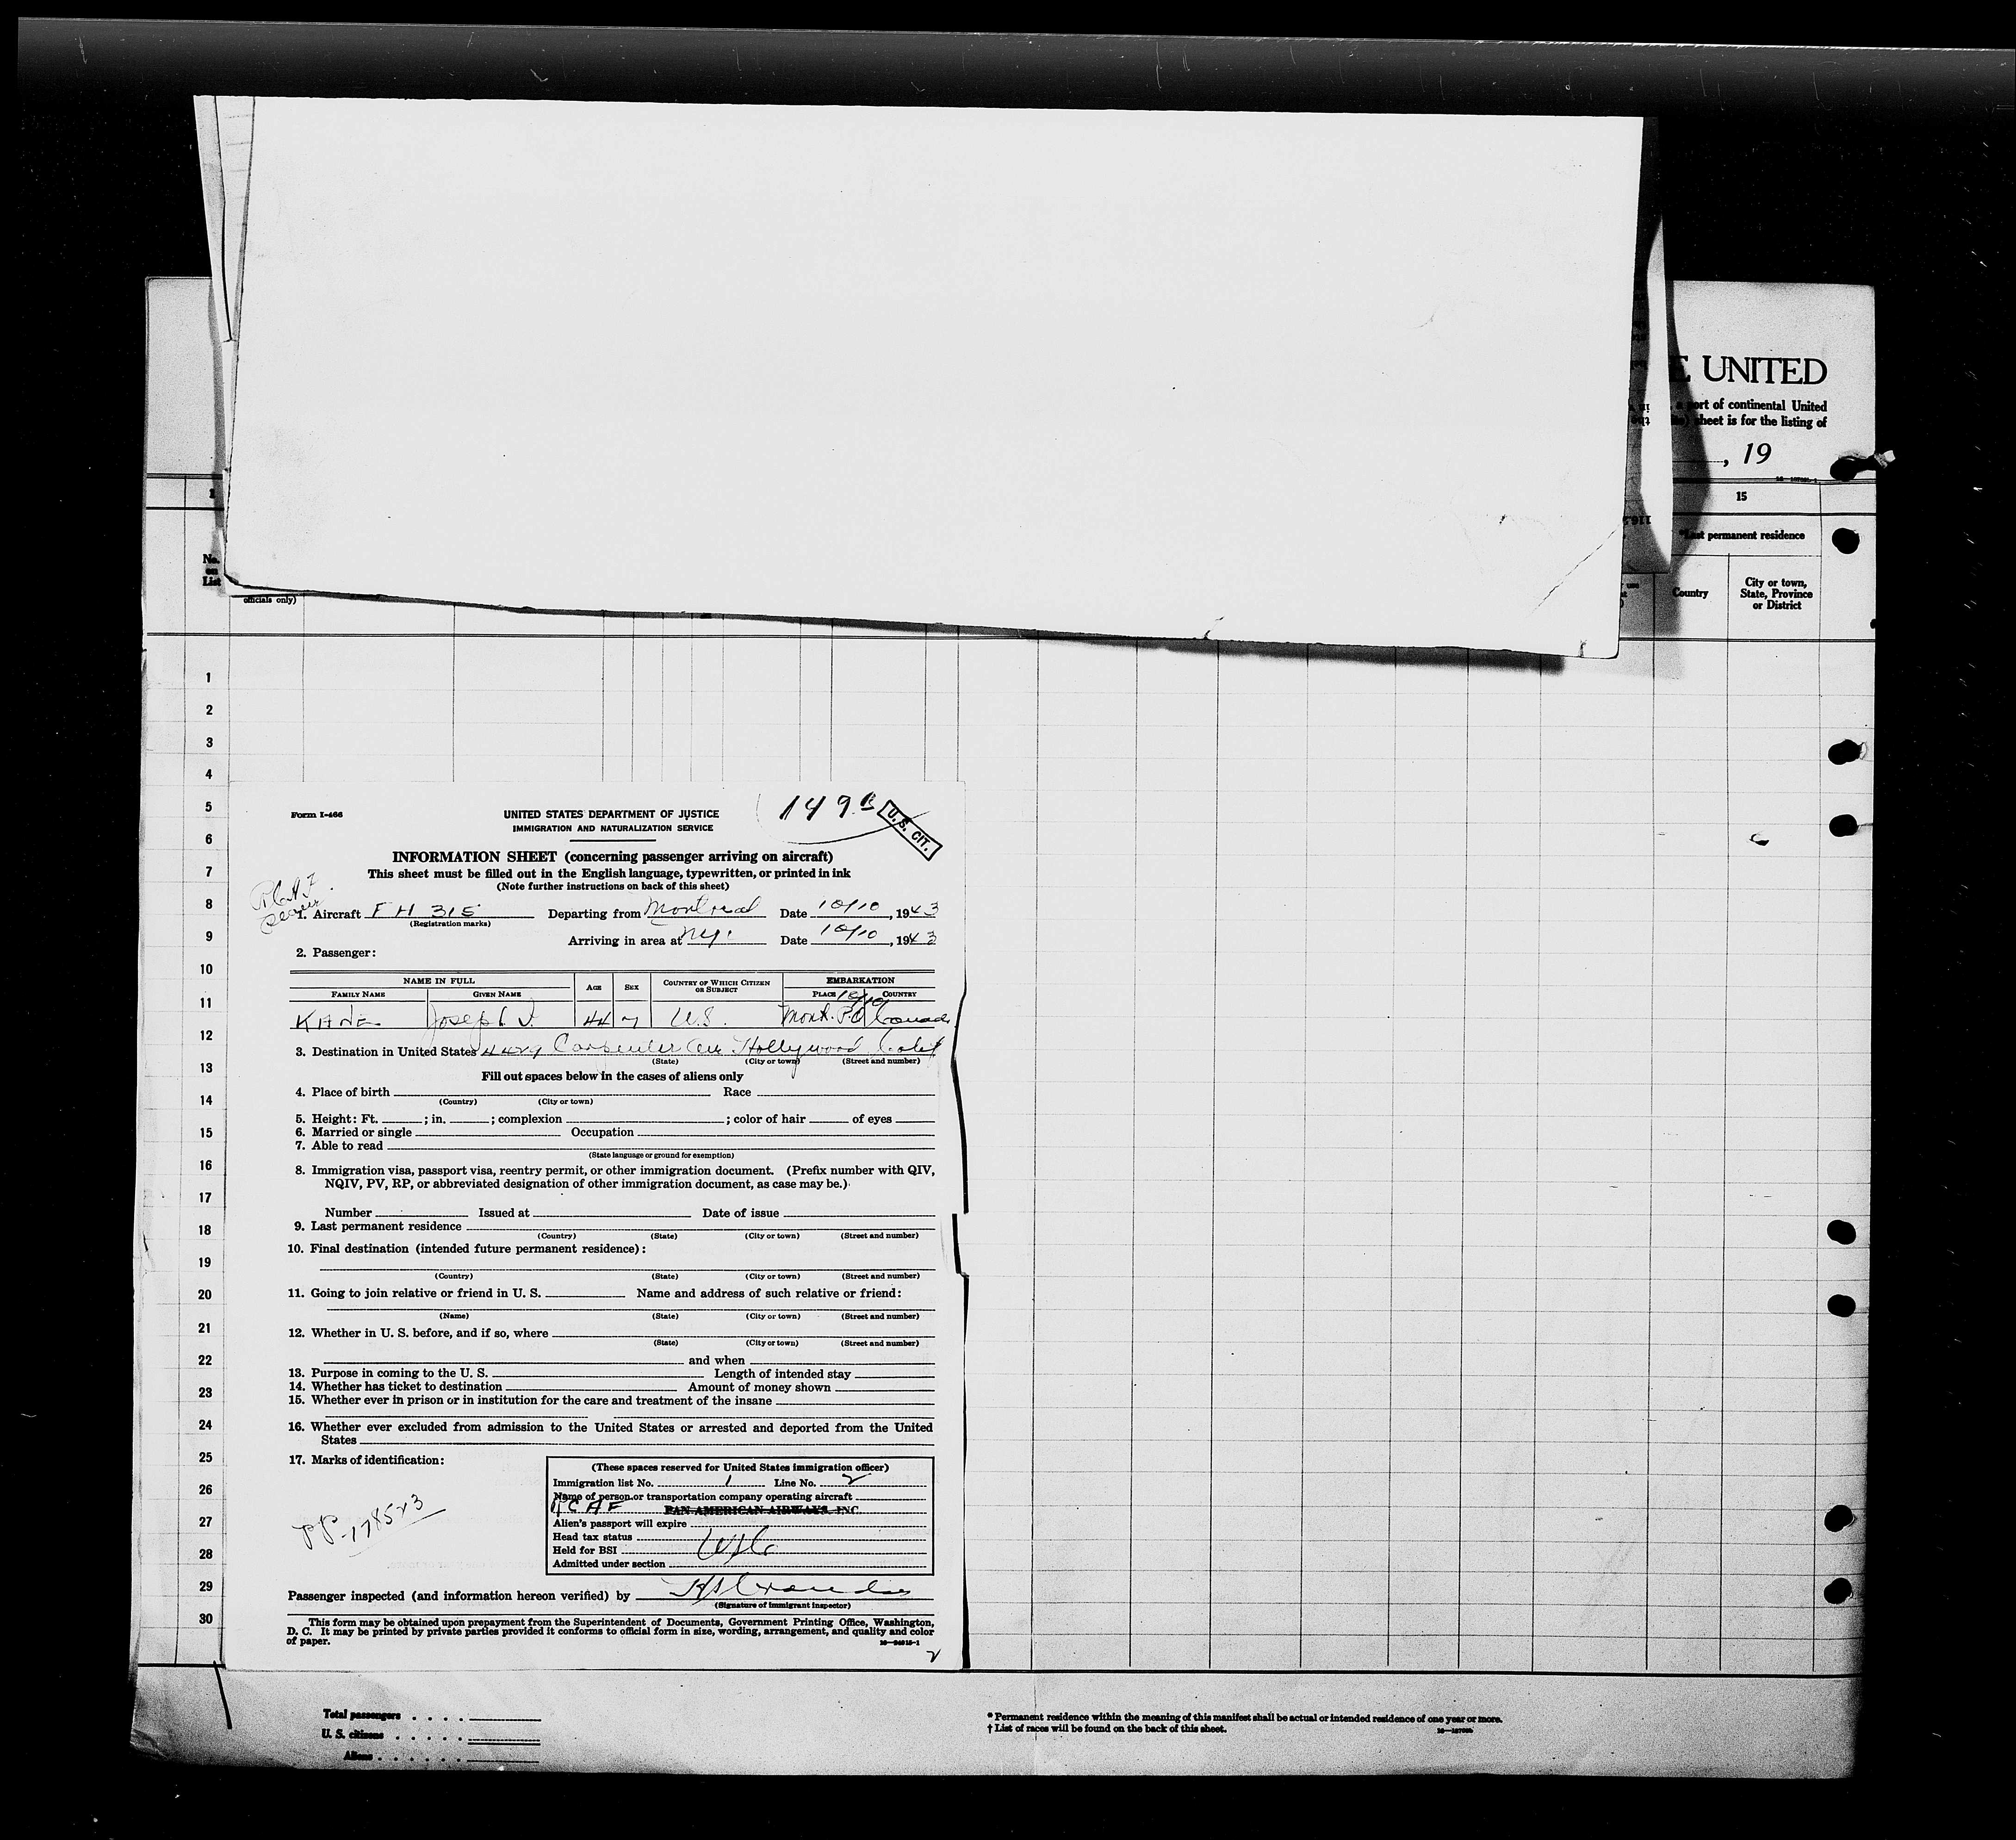 E UNITED
a port of continental United
sheet is for the listing of
, 19
15
*Last permanent residence
Country
City or town, State, Province or District
No. on List
officials only)
1
2
3
4
5
6
7
8
9
10
11
12
13
14
15
16
17
18
19
20
21
22
23
24
25
26
27
28
29
30
Form I-466
UNITED STATES DEPARTMENT OF JUSTICE
149
U.S. CIT.
IMMIGRATION AND NATURALIZATION SERVICE
INFORMATION SHEET (concerning passenger arriving on aircraft)
This sheet must be filled out in the English language, typewritten, or printed in ink
(Note further instructions on back of this sheet)
1. Aircraft FH 315 Departing from Montreal Date 10/10, 1943
(Registration marks)
Arriving in area at N.Y. Date 10/10, 1943
2. Passenger:
NAME IN FULL AGE SEX COUNTRY OF WHICH CITIZEN OR SUBJECT EMBARKATION
FAMILY NAME GIVEN NAME PLACE COUNTRY
10/10
KANE Joseph J. 44 M U.S. Mont. P.Q. Canada
3. Destination in United States 4429 Carpenter Ave Hollywood Calif
(State) (City or town) (Street and number)
Fill out spaces below in the cases of aliens only
4. Place of birth Race
(Country) (City or town)
5. Height: Ft. ; in. ; complexion ; color of hair of eyes
6. Married or single Occupation
7. Able to read
(State language or ground for exemption)
8. Immigration visa, passport visa, reentry permit, or other immigration document. (Prefix number with QIV,
NQIV, PV, RP, or abbreviated designation of other immigration document, as case may be.)
Number Issued at Date of issue
9. Last permanent residence
(Country) (State) (City or town) (Street and number)
10. Final destination (intended future permanent residence):
(Country) (State) (City or town) (Street and number)
11. Going to join relative or friend in U. S. Name and address of such relative or friend:
(Name) (State) (City or town) (Street and number)
12. Whether in U. S. before, and if so, where
(State) (City or town) (Street and number)
and when
13. Purpose in coming to the U. S. Length of intended stay
14. Whether has ticket to destination Amount of money shown
15. Whether ever in prison or in institution for the care and treatment of the insane
16. Whether ever excluded from admission to the United States or arrested and deported from the United
States
17. Marks of identification:
PP-178523
(These spaces reserved for United States immigration officer)
Immigration list No. 1 Line No. 2
Name of person or transportation company operating aircraft
RCAF PAN AMERICAN AIRWAYS, INC.
Alien's passport will expire
Head tax status
Held for BSI
Admitted under section
Passenger inspected (and information hereon verified) by
(Signature of immigrant inspector)
This form may be obtained upon prepayment from the Superintendent of Documents, Government Printing Office, Washington,
D. C. It may be printed by private parties provided it conforms to official form in size, wording, arrangement, and quality and color
of paper.
2
Total passengers
U. S. citizens
Aliens
* Permanent residence within the meaning of this manifest shall be actual or intended residence of one year or more.
† List of races will be found on the back of this sheet.